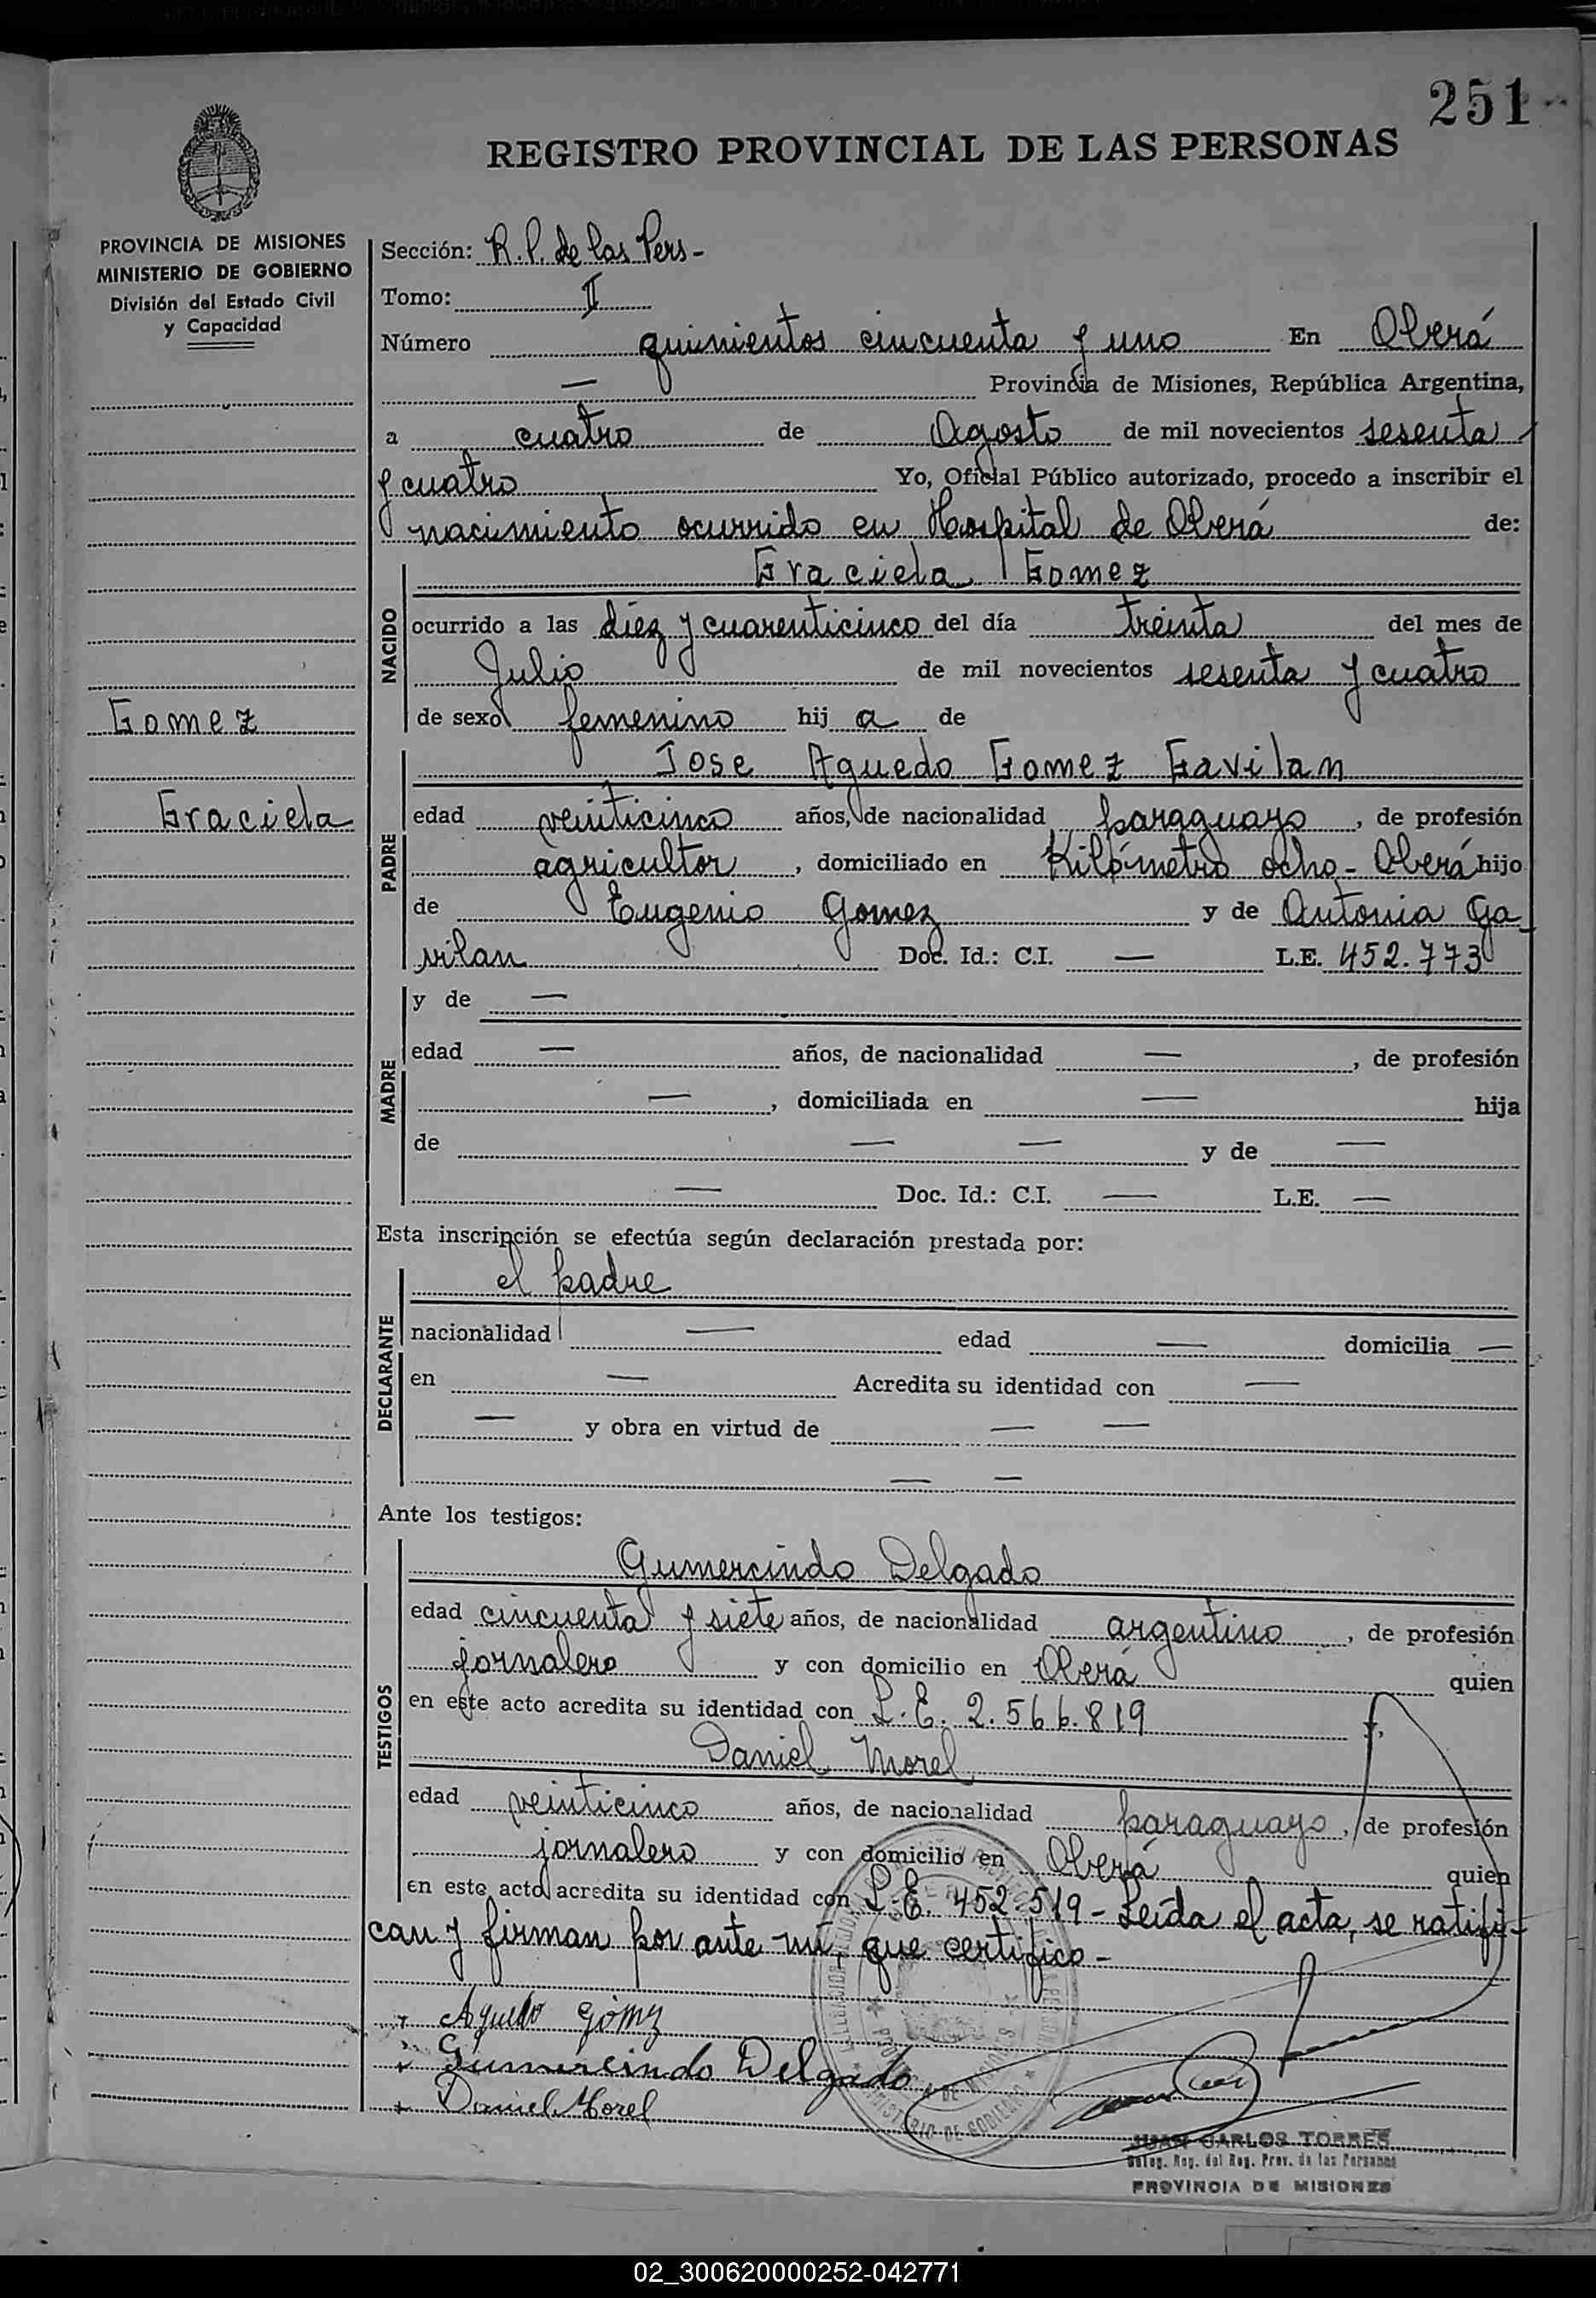 251
REGISTRO PROVINCIAL DE LAS PERSONAS
PROVINCIA DE MISIONES
MINISTERIO DE GOBIERNO
División del Estado Civil
y Capacidad
Gomez
Graciela
Sección: R.P. de las Pers-
Tomo: II
Número quinientos cincuenta y uno En Oberá
— Provincia de Misiones, República Argentina,
a cuatro de Agosto de mil novecientos sesenta
y cuatro Yo, Oficial Público autorizado, procedo a inscribir el
nacimiento ocurrido en Hospital de Oberá de:
NACIDO
Graciela Gomez
ocurrido a las diez y cuarenticinco del día treinta del mes de
Julio de mil novecientos sesenta y cuatro
de sexo femenino hij a de
PADRE
Jose Aguedo Gomez Gavilan
edad veinticinco años, de nacionalidad paraguayo, de profesión
agricultor, domiciliado en Kilómetro ocho - Oberá hijo
de Eugenio Gomez y de Antonia Ga-
vilan Doc. Id.: C.I. — L.E. 452.773
MADRE
y de —
edad — años, de nacionalidad —, de profesión
—, domiciliada en — hija
de — — y de —
— Doc. Id.: C.I. — L.E. —
Esta inscripción se efectúa según declaración prestada por:
DECLARANTE
el padre
nacionalidad — edad — domicilia —
en — Acredita su identidad con —
— y obra en virtud de — —
— —
Ante los testigos:
TESTIGOS
Gumercindo Delgado
edad cincuenta y siete años, de nacionalidad argentino, de profesión
jornalero y con domicilio en Oberá quien
en este acto acredita su identidad con L.E. 2.566.819 y,
Daniel Morel
edad veinticinco años, de nacionalidad paraguayo, de profesión
jornalero y con domicilio en Oberá quien
en este acto acredita su identidad con L.E. 452.519 - Leída el acta, se ratifi-
can y firman por ante mí, que certifico -
Aguedo Gómez
Gumercindo Delgado
Daniel Morel
MINISTERIO DE GOBIERNO
JUAN CARLOS TORRES
Deleg. Reg. del Reg. Prov. de las Personas
PROVINCIA DE MISIONES
02_300620000252-042771